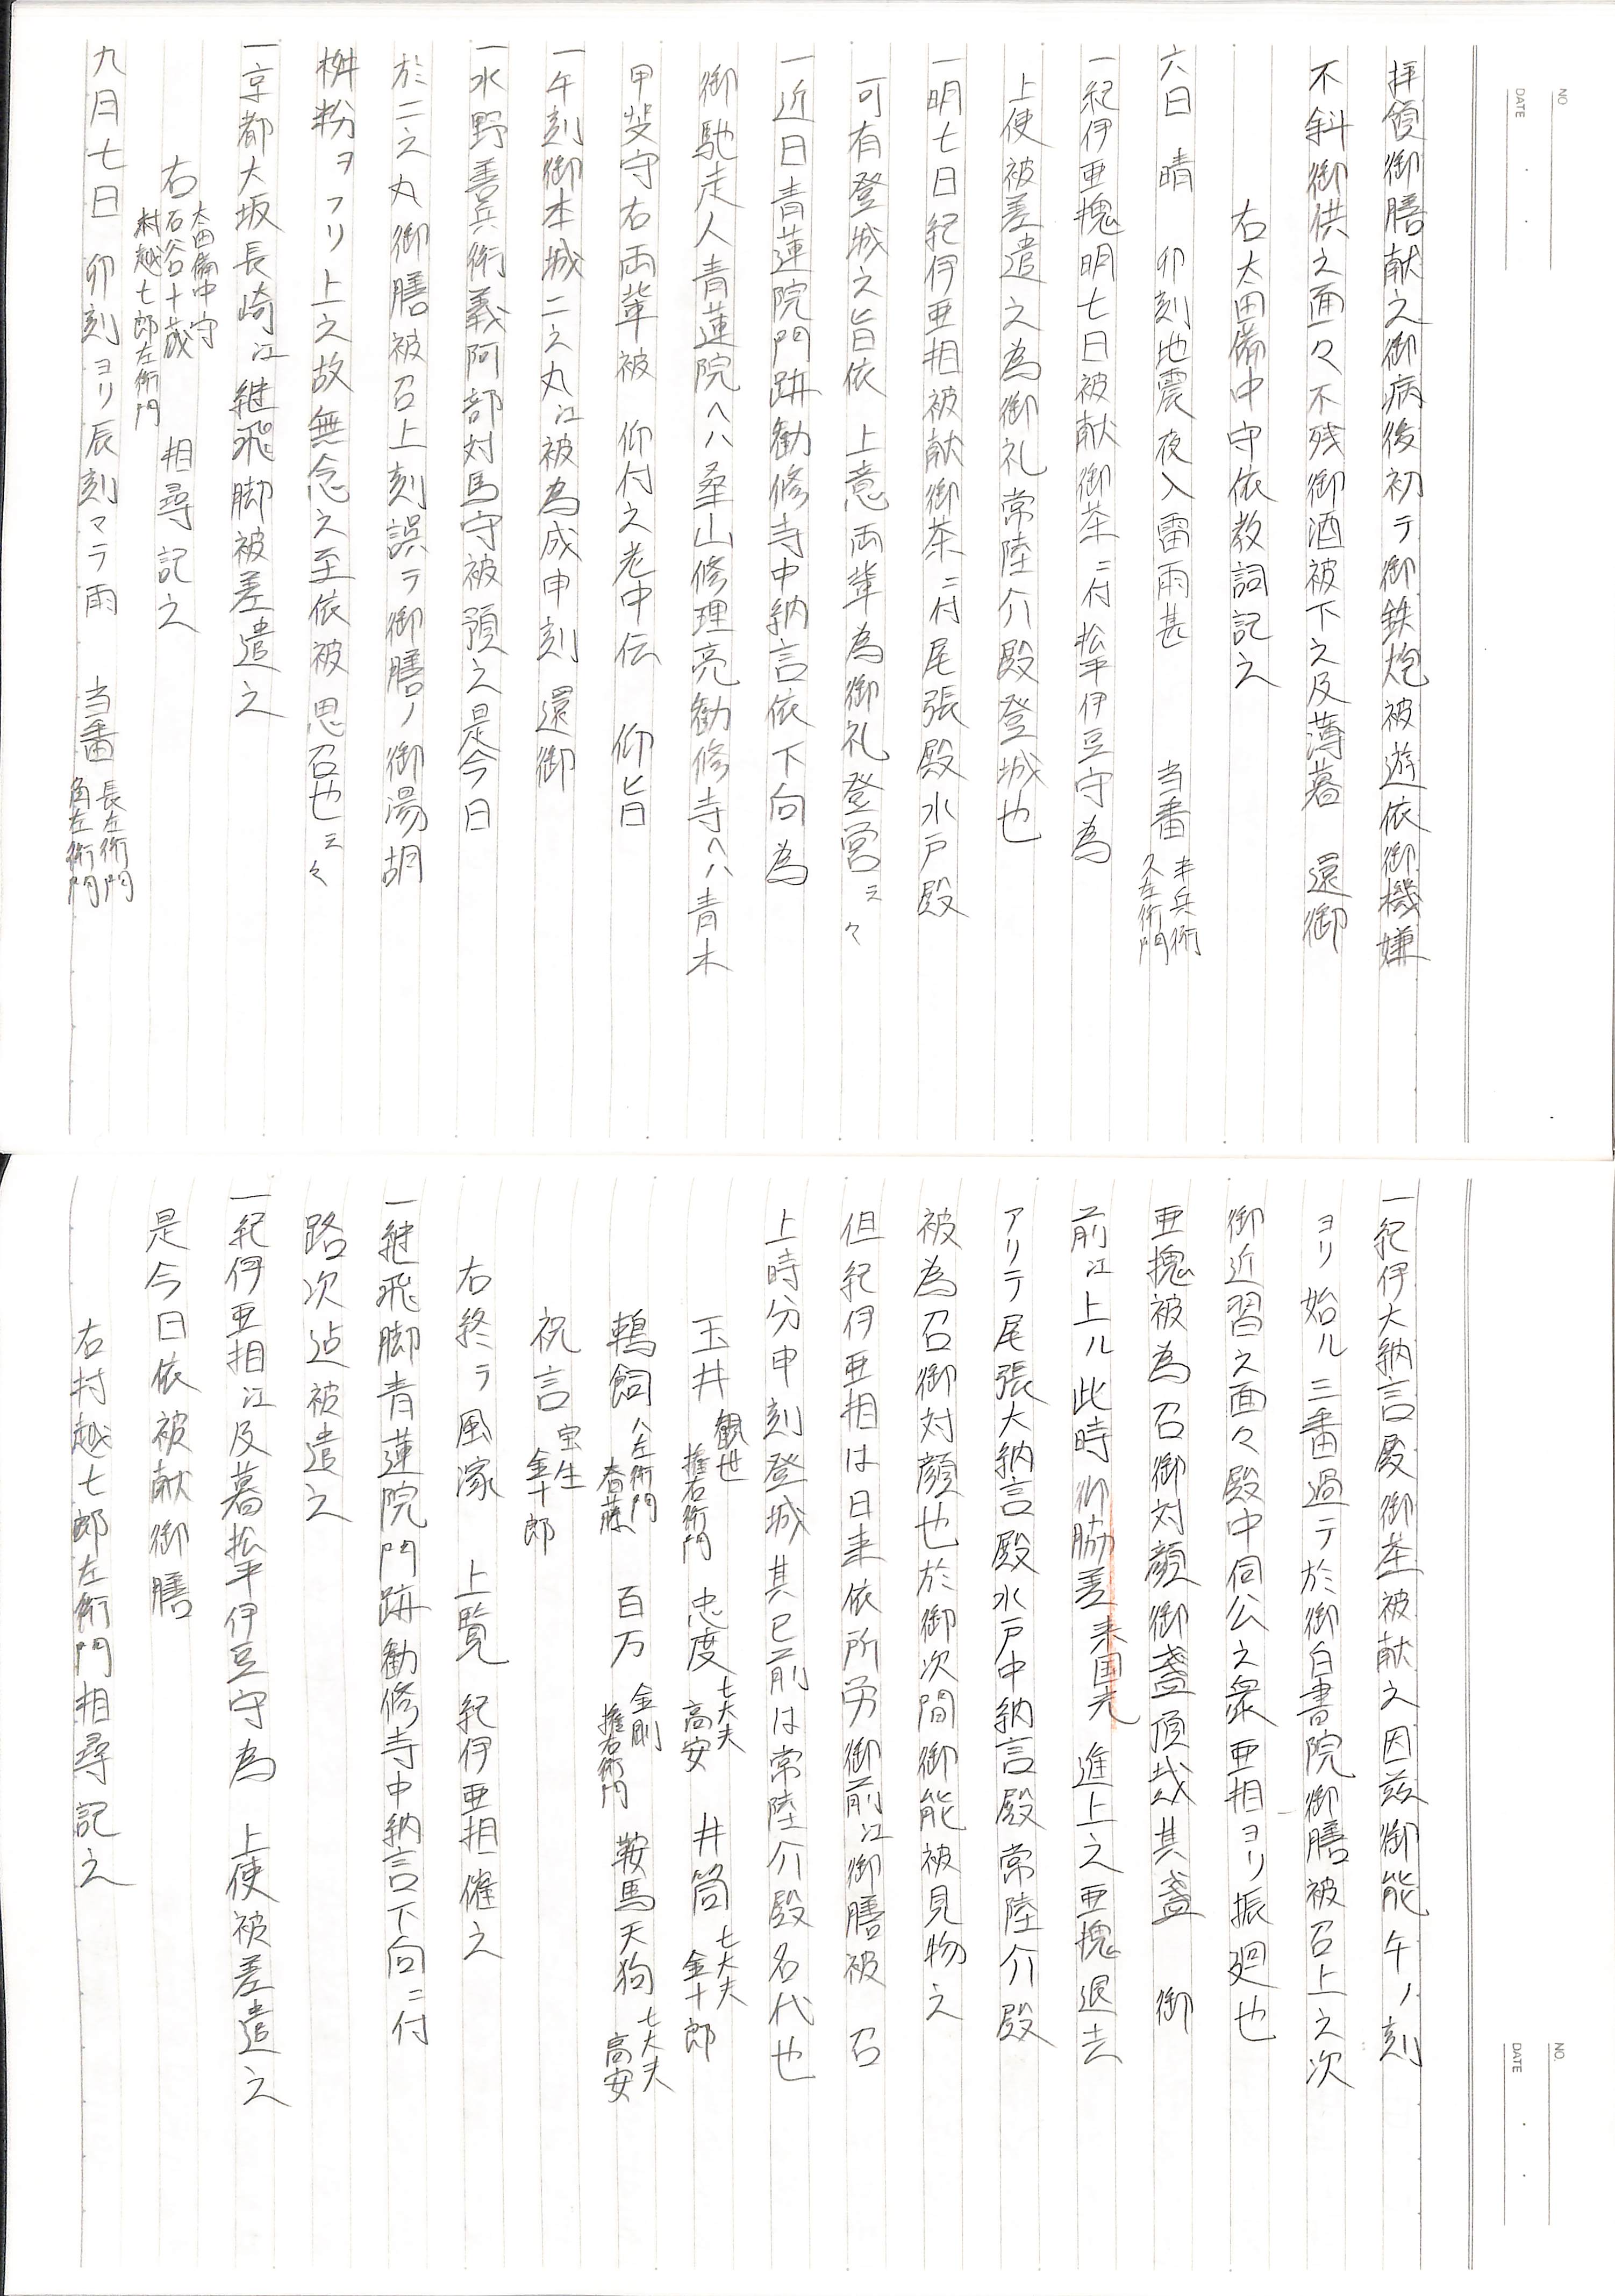 NO
DATE
拝領御膳献之御病後初テ御鉄炮被遊依御機嫌
不斜御供之面々不残御酒被下之及薄暮　還御
右太田備中守依教詞記之
六日　晴　卯刻地震夜入雷雨甚　当番 半兵衛 久左衛門
一紀伊亜槐明七日被献御茶ニ付松平伊豆守為
上使被差遣之為御礼常陸介殿登城也
一明七日紀伊亜相被献御茶ニ付尾張殿水戸殿
可有登城之旨依　上意両輩為御礼登営云々
一近日青蓮院門跡勧修寺中納言依下向為
御馳走人青蓮院ヘハ桑山修理亮勧修寺ヘハ青木
甲斐守右両輩被　仰付之老中伝　仰旨
一午刻御本城二之丸江被為成申刻　還御
一水野善兵衛義阿部対馬守被預之是今日
於二之丸御膳被召上刻誤テ御膳ノ御湯胡
椒粉ヲフリ上之故無念之至依被　思召也云々
一京都大坂長崎江継飛脚被差遣之
右 太田備中守 石谷十蔵 村越七郎左衛門 相尋記之
九月七日　卯刻ヨリ辰刻マテ雨　当番 長左衛門 角左衛門
NO
DATE
一紀伊大納言殿御茶被献之因茲御能午ノ刻
ヨリ始ル三番過テ於御白書院御膳被召上之次
御近習之面々殿中伺公之衆亜相ヨリ振廻也
亜槐被為召御対顔御盞頂戴其盞　御
前江上ル此時御脇差来国光　進上之亜槐退去
アリテ尾張大納言殿水戸中納言殿常陸介殿
被為召御対顔也於御次間御能被見物之
但紀伊亜相は日来依所労御前江御膳被　召
上時分申刻登城其已前は常陸介殿名代也
玉井 観世 権右衛門　忠度 七大夫 高安　井筒 七大夫 金十郎
鵜飼 八左衛門 春藤　百万 金剛 権右衛門　鞍馬天狗 七大夫 高安
祝言 宝生 金十郎
右終テ風濠　上覧　紀伊亜相催之
一継飛脚青蓮院門跡勧修寺中納言下向ニ付
路次迠被遣之
一紀伊亜相江及暮松平伊豆守為　上使被差遣之
是今日依被献御膳
右村越七郎左衛門相尋記之